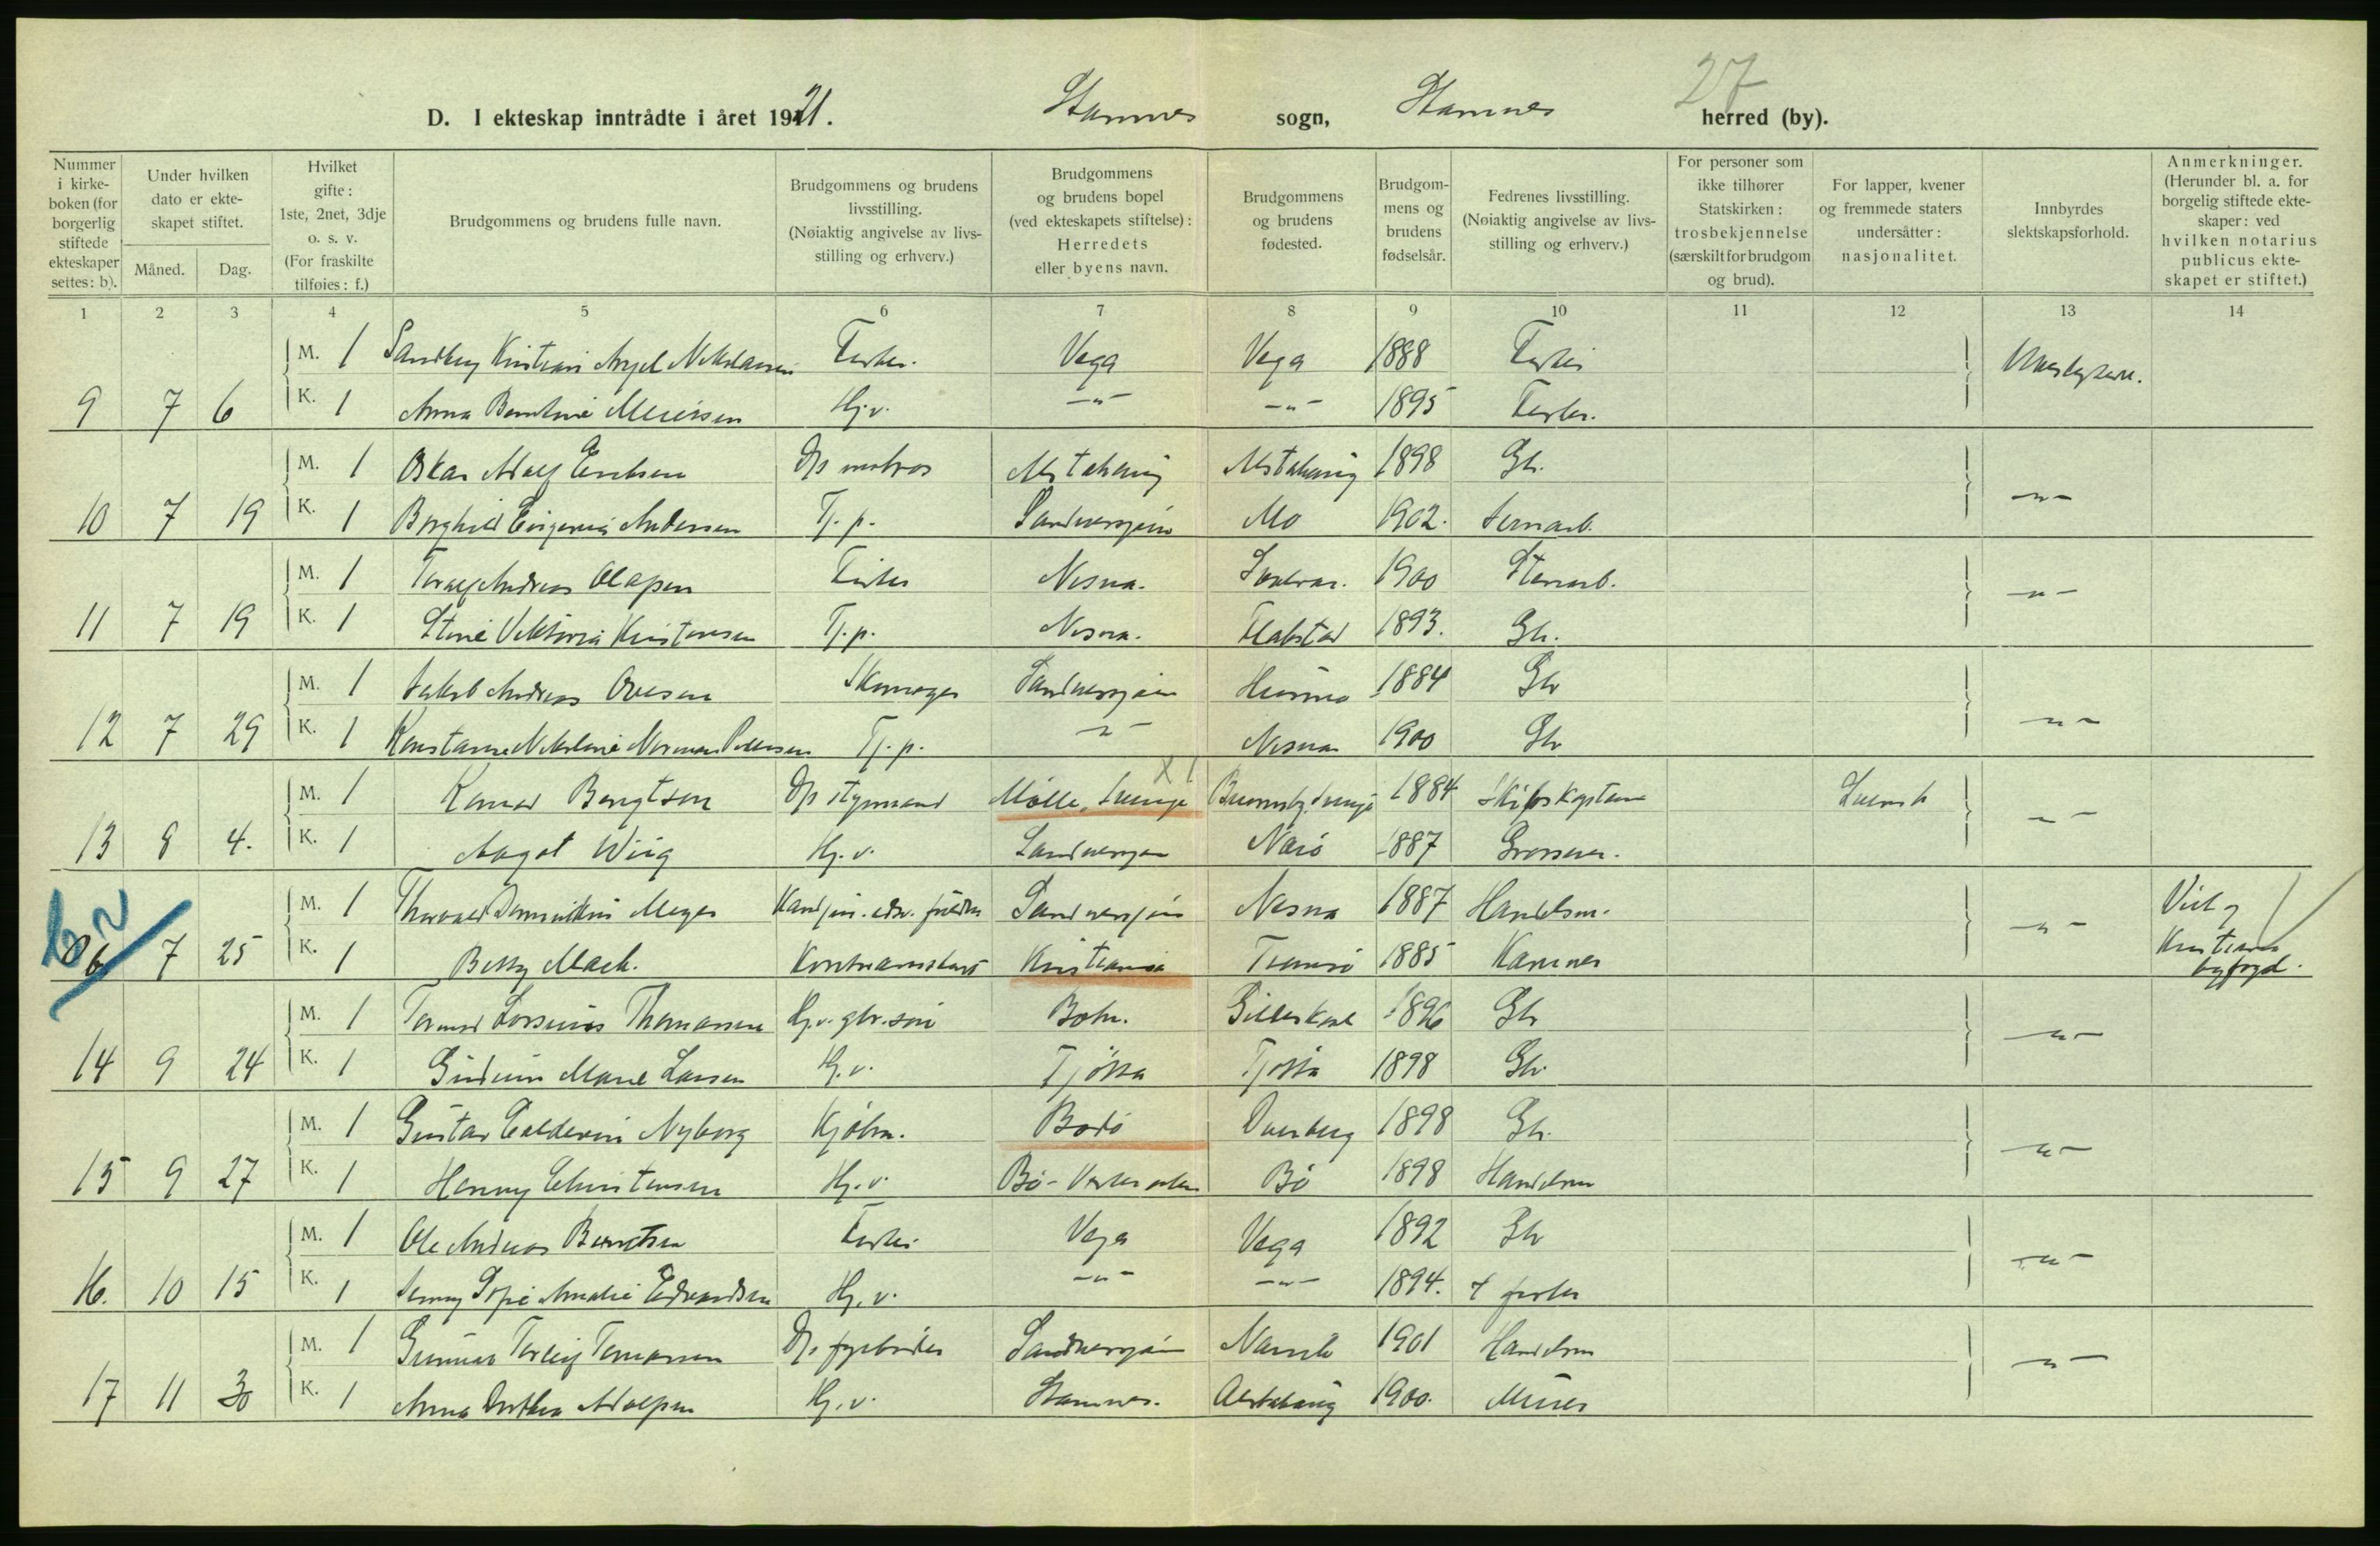 27
D. I ekteskap inntrådte i året 1921. Stamnes sogn, Stamnes herred (by).
Nummer i kirkeboken (for borgerlig stiftede ekteskaper settes: b).
Under hvilken dato er ekteskapet stiftet.
Måned. Dag.
Hvilket gifte: 1ste, 2net, 3dje o. s. v. (For fraskilte tilføies: f.)
Brudgommens og brudens fulle navn.
Brudgommens og brudens livsstilling. (Nøiaktig angivelse av livsstilling og erhverv.)
Brudgommens og brudens bopel (ved ekteskapets stiftelse): Herredets eller byens navn.
Brudgommens og brudens fødested.
Brudgommens og brudens fødselsår.
Fedrenes livsstilling. (Nøiaktig angivelse av livsstilling og erhverv.)
For personer som ikke tilhører Statskirken: trosbekjennelse (særskilt for brudgom og brud).
For lapper, kvener og fremmede staters undersåtter: nasjonalitet.
Innbyrdes slektskapsforhold.
Anmerkninger. (Herunder bl. a. for borgelig stiftede ekteskaper: ved hvilken notarius publicus ekteskapet er stiftet.)
1 2 3 4 5 6 7 8 9 10 11 12 13 14
M. 1 Sandberg Kristian Angel Nikolaisen Fisker. Vega Vega 1888 Fisker Ubeslegtede.
9 7 6 K. 1 Anna Berntine Meiersen Hj.v. -"- -"- 1895 Fisker.
M. 1 Oskar Adolf Eriksen D/s matros Alstahaug Alstahaug 1898 Gb.
10 7 19 K. 1 Borghild Eugenie Andersen Tj. p. Sandnessjøen Mo 1902. Jernarb. -"-
M. 1 Toralf Andreas Olafsen Fisker Nesna. 1900
11 7 19 K. 1 Viktoria Kristensen Tj. p. Nesna. Flakstad 1893. Gb. -"-
M. 1 Jakob Andreas Ovesen Skomager Sandnessjøen 1884 Gb
12 7 29 K. 1 Konstanse Nikoline Norman Pettersen Tj. p. -"- Nesna 1900 Gb -"-
X 1
M. 1 Konrad Bengtson D/s styrmand Mölle, Sverige Brunnby, Sverige 1884 Skibskaptein Svensk
13 8 4. K. 1 Aagot Wiig Hj. v. Sandnessjøen Nærö 1887 Grosserer. -"-
M. 1 Thorvald Meyer Sandnessjøen Nesna 1887 Handelsm. Vid
b 2
8b 7 25 K. 1 Betty Mack. Kristiania Tromsö 1885 -"- Kristiania byfogd.
M. 1 Tormod Thomassen Hj. v. gbr. søn Bodin. Gilleskaal 1896 Gb
14 9 24 K. 1 Gudrun Marie Larsen Hj. v. Tjötta Tjötta 1898 Gb. -"-
M. 1 Gustav Nyborg Kjøbm. Bodö Dverberg 1898 Gb.
15 9 27 K. 1 Henny Christensen Hj. v. Bö - Vesteraalen Bö 1898 Handelsm -"-
M. 1 Ole Andreas Berntsen Fisker Vega Vega 1892 Gb
16. 10 15 K. 1 Jenny Sofie Amalie Edvardsen Hj. v. -"- -"- 1894. + fisker -"-
M. 1 Gunnar Torleif Tomassen D/s fyrbøter Sandnessjøen 1901 Handelsm
17 11 30 K. 1 Anna Dorthea Adolfsen Hj. v. Stamnes. Alstahaug 1900. Murer -"-